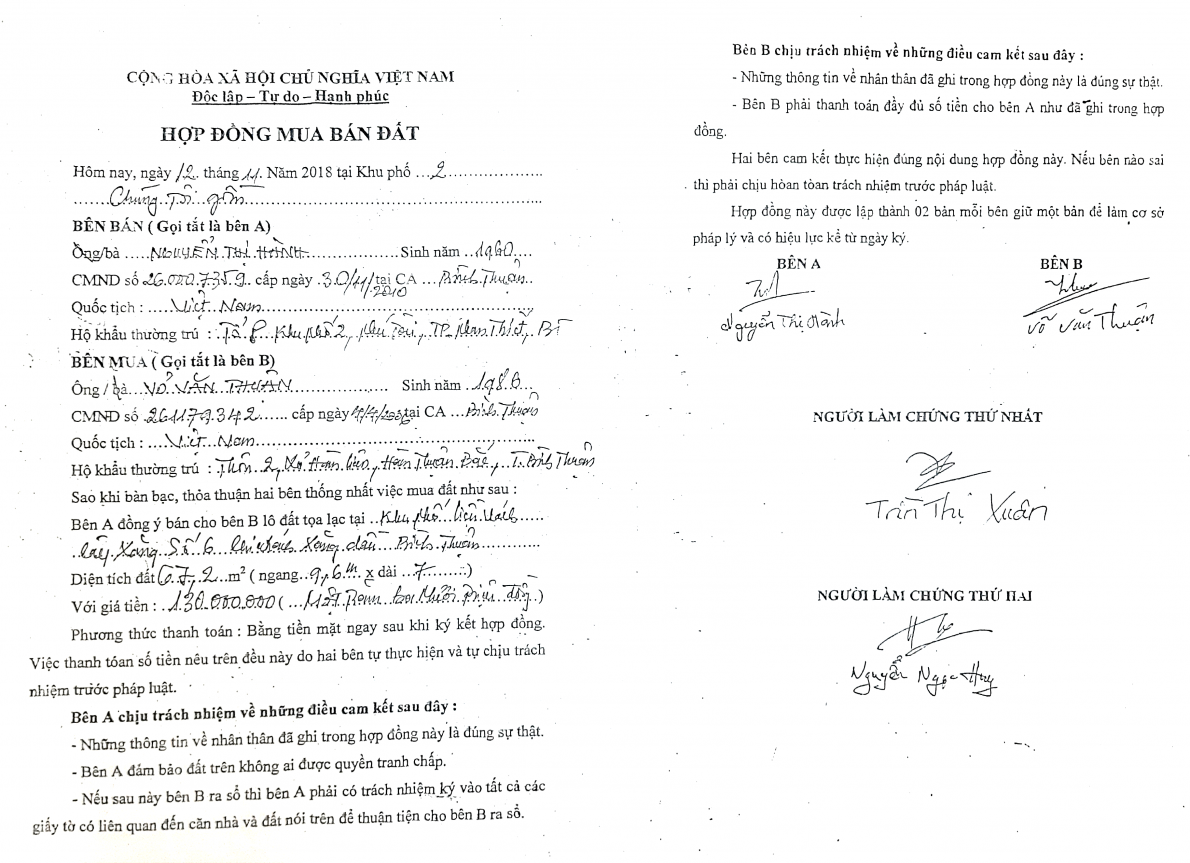 CỘNG HÒA XÃ HỘI CHỦ NGHĨA VIỆT NAM
Độc lập – Tự do – Hạnh phúc
HỢP ĐỒNG MUA BÁN ĐẤT
Hôm nay, ngày 12 tháng 11 Năm 2018 tại Khu phố ...2....................
.......Chúng Tôi gồm.......................................................
BÊN BÁN ( Gọi tắt là bên A)
Ông/bà ....NGUYỄN THỊ HÀNH......................Sinh năm ..1960....
CMND số 26.000.7359.. cấp ngày .30/11/2010 tại CA ... Bình Thuận..
Quốc tịch : ....Việt Nam...............................................
Hộ khẩu thường trú : Tổ 8, Khu phố 2, Phú Tài, TP. Phan Thiết, BT
BÊN MUA ( Gọi tắt là bên B)
Ông / bà....VÕ VĂN THUẬN.................. Sinh năm ..1986...
CMND số .261179.342...... cấp ngày tại CA ...Bình Thuận
Quốc tịch : ....Việt Nam...............................................
Hộ khẩu thường trú : Thôn 2, Xã Hàm Hàm Thuận Bắc, T. Bình Thuận
Sao khi bàn bạc, thỏa thuận hai bên thống nhất việc mua đất như sau :
Bên A đồng ý bán cho bên B lô đất tọa lạc tại ..Khu phố
Xăng Số 6 Xăng dầu Bình Thuận............
Diện tích đất 67,2..m² ( ngang..9,6m.. x dài ...7........)
Với giá tiền : .130.000.000 ( ...Một Trăm ba Mươi Triệu đồng..)
Phương thức thanh toán : Bằng tiền mặt ngay sau khi ký kết hợp đồng.
Việc thanh tóan số tiền nêu trên đều này do hai bên tự thực hiện và tự chịu trách
nhiệm trước pháp luật.
Bên A chịu trách nhiệm về những điều cam kết sau đây :
- Những thông tin về nhân thân đã ghi trong hợp đồng này là đúng sự thật.
- Bên A đảm bảo đất trên không ai được quyền tranh chấp.
- Nếu sau này bên B ra sổ thì bên A phải có trách nhiệm ký vào tất cả các
giấy tờ có liên quan đến căn nhà và đất nói trên để thuận tiện cho bên B ra sổ.
Bên B chịu trách nhiệm về những điều cam kết sau đây :
- Những thông tin về nhân thân đã ghi trong hợp đồng này là đúng sự thật.
- Bên B phải thanh toán đầy đủ số tiền cho bên A như đã ghi trong hợp
đồng.
Hai bên cam kết thực hiện đúng nội dung hợp đồng này. Nếu bên nào sai
thì phải chịu hòan tòan trách nhiệm trước pháp luật.
Hợp đồng này được lập thành 02 bản mỗi bên giữ một bản để làm cơ sở
pháp lý và có hiệu lực kể từ ngày ký.
BÊN A BÊN B
Nguyễn Thị Hành Võ Văn Thuận
NGƯỜI LÀM CHỨNG THỨ NHẤT
Trần Thị Xuân
NGƯỜI LÀM CHỨNG THỨ HAI
Nguyễn Ngọc Huy